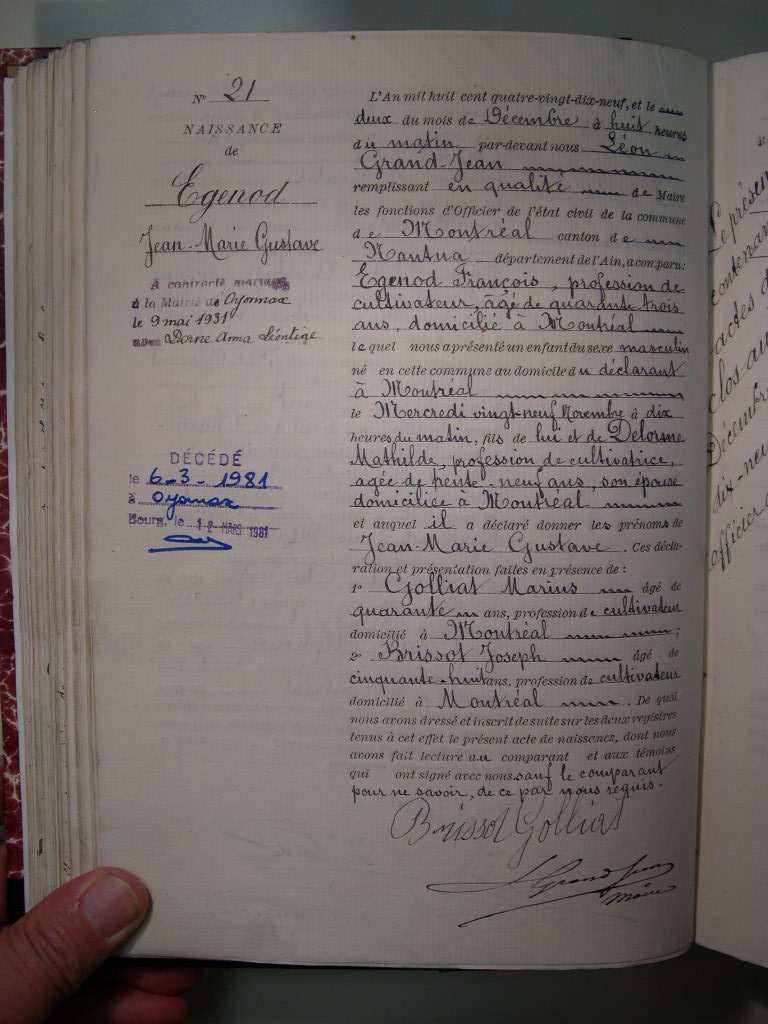 N° 21
NAISSANCE
de
Egenod
Jean-Marie Gustave
A contracté mariage
à la Mairie de Oyonnax
le 9 mai 1931
avec Dorne Anna Léontine
DÉCÉDÉ
le 6-3-1981
à Oyonnax
Bourg, le 12 MARS 1981
L'An mil huit cent quatre-vingt-dix-neuf, et le
deux du mois de Décembre à huit heures
du matin par-devant nous Léon
Grand-Jean
remplissant en qualité de Maire
les fonctions d'Officier de l'état civil de la commune
de Montréal canton de
Nantua département de l'Ain, a comparu:
Egenod François, profession de
cultivateur, âgé de quarante trois
ans, domicilié à Montréal
lequel nous a présenté un enfant du sexe masculin
né en cette commune au domicile du déclarant
à Montréal
le Mercredi vingt-neuf Novembre à dix
heures du matin, fils de lui et de Delorme
Mathilde, profession de cultivatrice,
agée de trente-neuf ans, son épouse
domiciliée à Montréal
et auquel il a déclaré donner les prénoms de
Jean-Marie Gustave. Ces décla-
ration et présentation faites en présence de :
1° Golliat Marius âgé de
quarante ans, profession de cultivateur
domicilié à Montréal ;
2° Brissot Joseph âgé de
cinquante-huit ans, profession de cultivateur
domicilié à Montréal. De quoi
nous avons dressé et inscrit de suite sur les deux registres
tenus à cet effet le présent acte de naissance, dont nous
avons fait lecture au comparant et aux témoins
qui ont signé avec nous sauf le comparant
pour ne savoir, de ce par nous requis.
Brissot Golliat
L Grand Jean
Maire
Le présent
contenant
actes d
clos au
Décembre
dix-neu
officier d